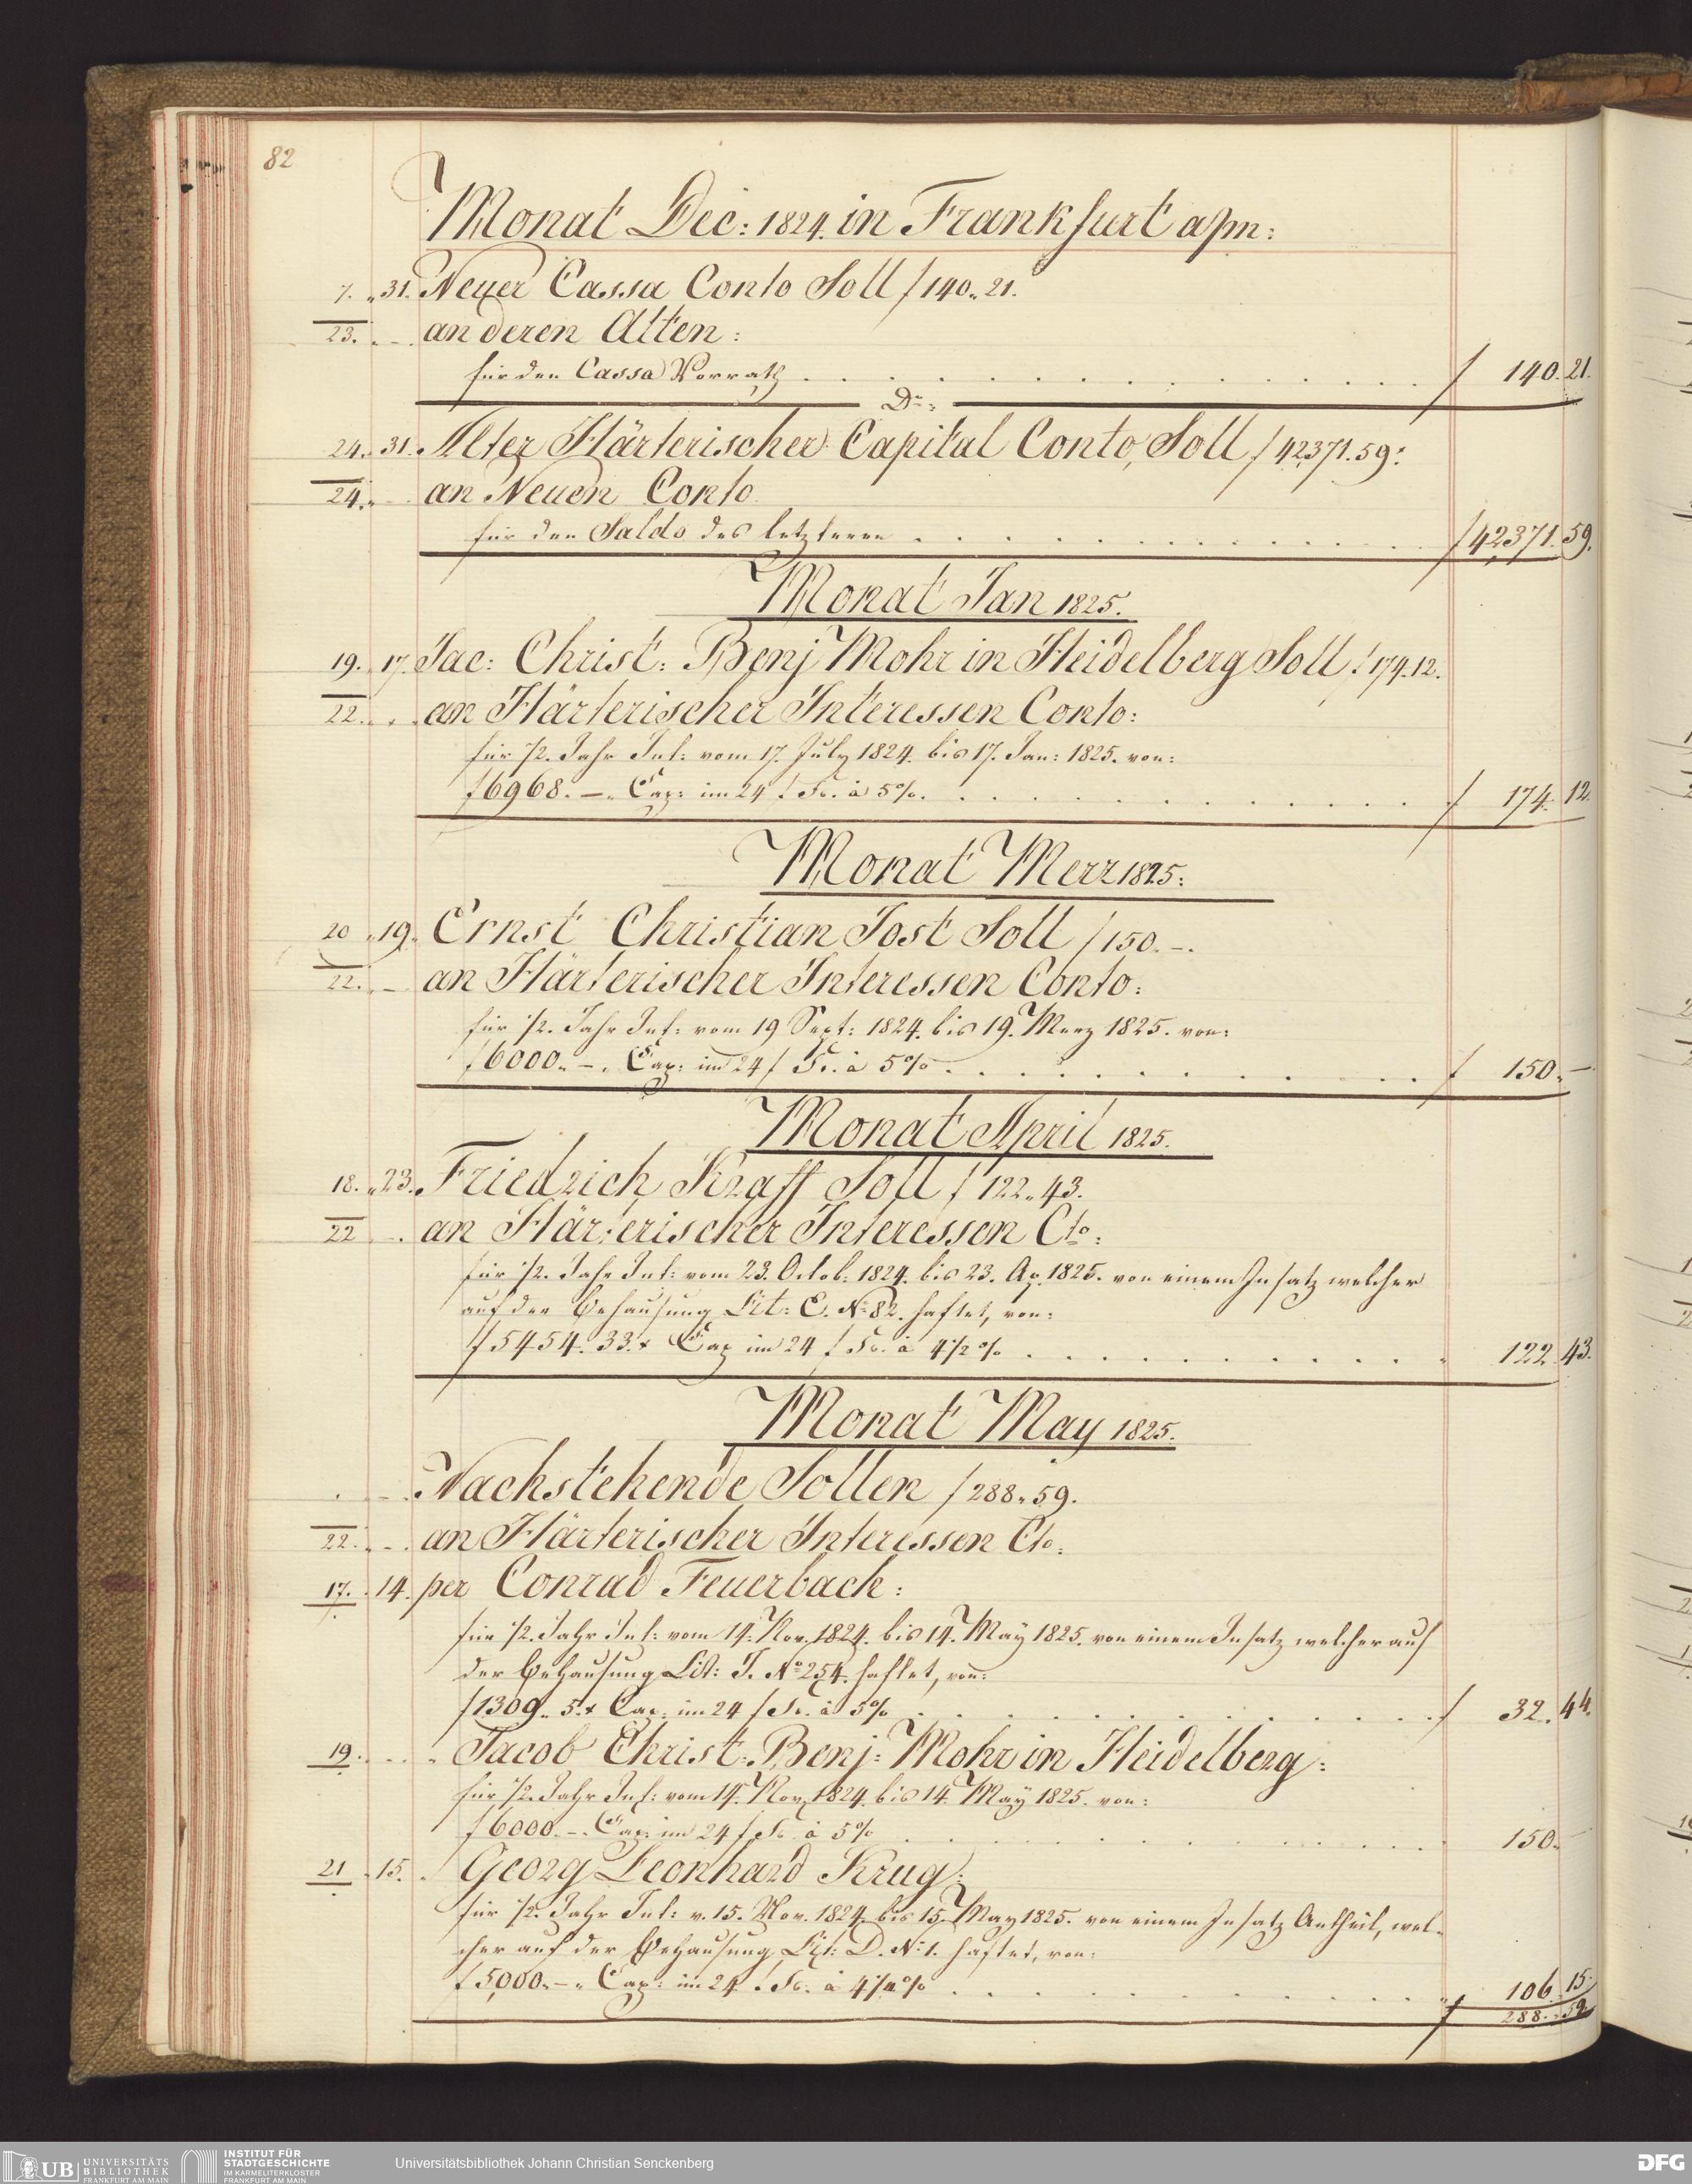 82
Monat Dec: 1824. in Frankfurt a/m:
7. 31. Neuer Cassa Conto Soll f 140. 21.
23. an deren Alten:
für den Cassa Vorrath f 140. 21.
Do:
24. 31. Alter Härterischer Capital Conto, Soll f 42,371. 59:
24. an Neuen Conto
für den Saldo des letzteren f 42,371. 59.
Monat Jan 1825.
19. 17. Jac: Christ: Benj Mohr in Heidelberg Soll f 174. 12.
22. an Härterischer Interessen Conto:
für 1/2. Jahr Int: vom 17. July 1824. bis 17. Jan: 1825. von:
f 6968. –. Cap: im 24 f Fs. à 5%. f 174. 12.
Monat Merz 1825:
20 19. Ernst Christian Jost Soll f 150. –.
22. – an Härterischer Interessen Conto:
für 1/2. Jahr Int: vom 19 Sept: 1824. bis 19. Merz 1825. von:
f 6000. –. Cap: im 24 f Fs. à 5% f 150. –
Monat April 1825.
18. 23. Friedrich Kraff Soll f 122. 43.
22 an Härterischer Interessen Cto:
für 1/2. Jahr Int: vom 23. Octob: 1824. bis 23. Ap. 1825. von einem Insatz welcher
auf der Behausung Lit: C. No 82. haftet, von:
f 5454. 33.x Cap im 24 f Fs. à 4 1/2 % 122. 43.
Monat May 1825.
Nachstehende Sollen f 288. 59.
22. an Härterischer Interessen Cto:
17. 14. per Conrad Feuerbach:
für 1/2. Jahr Int: vom 14. Nov. 1824. bis 14. May 1825. von einem Insatz welcher auf
der Behausung Lit: J. No 254. haftet, von:
f 1309. 5.x Cap: im 24 f Fs. à 5% f 32. 44.
19. Jacob Christ: Benj: Mohr in Heidelberg:
für 1/2. Jahr Int: vom 14. Nov. 1824. bis 14. May 1825. von:
f 6000. –. Cap: im 24 f Fs. à 5% 150. –
21 15. Georg Leonhard Krug:
für 1/2. Jahr Int: v. 15. Nov. 1824. bis 15. May 1825. von einem Insatz Antheil, wel-
cher auf der Behausung Lit: D. No 1. haftet, von:
f 5,000. –. Cap: im 24 f Fs. à 4 1/4 % 106. 15
f 288. 59
UB UNIVERSITÄTS
BIBLIOTHEK
FRANKFURT AM MAIN
INSTITUT FÜR
STADTGESCHICHTE
IM KARMELITERKLOSTER
FRANKFURT AM MAIN
Universitätsbibliothek Johann Christian Senckenberg
DFG